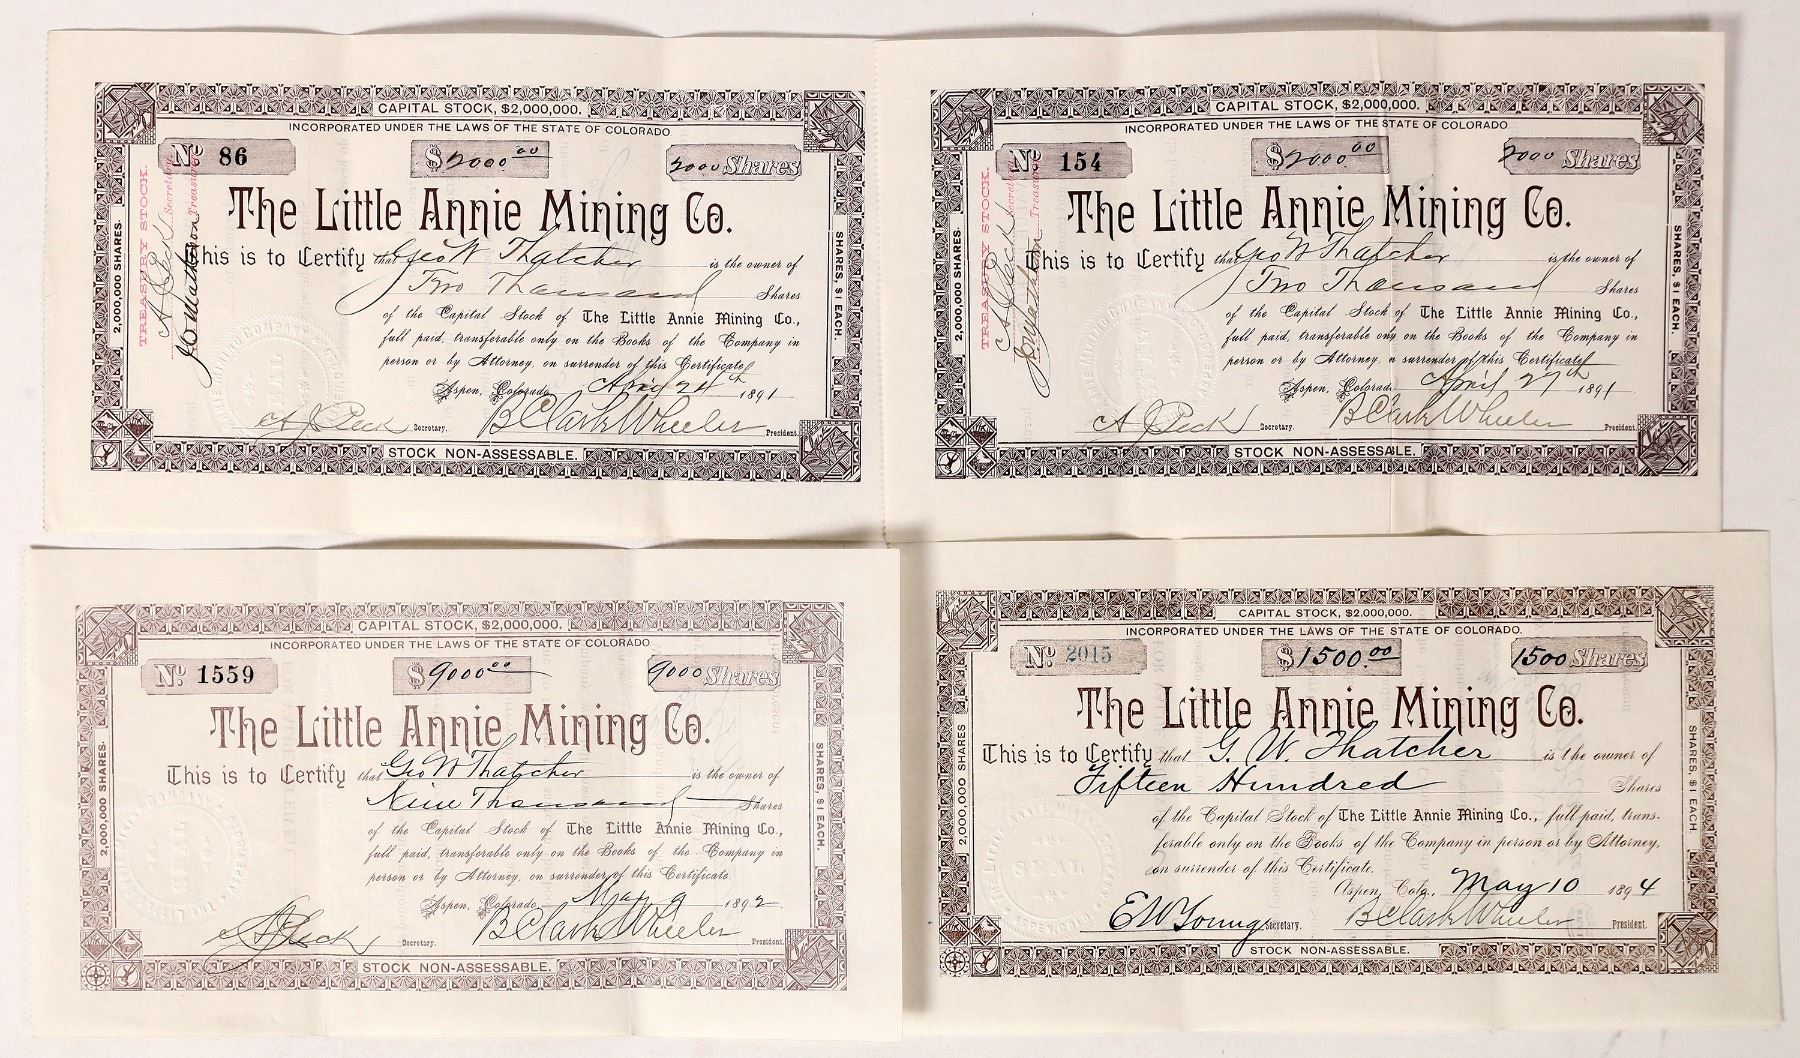 CAPITAL STOCK, $2,000,000.
INCORPORATED UNDER THE LAWS OF THE STATE OF COLORADO
No 86 $2000.00 2000 Shares
The Little Annie Mining Co.
This is to Certify that Geo W Thatcher is the owner of
Two Thousand Shares
of the Capital Stock of The Little Annie Mining Co.,
full paid, transferable only on the Books of the Company in
person or by Attorney, on surrender of this Certificate
Aspen, Colorado, April 24th 1891
A J Peck Secretary. B Clark Wheeler President.
STOCK NON-ASSESSABLE.
2,000,000 SHARES.
SHARES, $1 EACH.
TREASURY STOCK.
A J Peck Secretary
Treasurer
CAPITAL STOCK, $2,000,000.
INCORPORATED UNDER THE LAWS OF THE STATE OF COLORADO
No 154 $2000.00 2000 Shares
The Little Annie Mining Co.
This is to Certify that Geo W Thatcher is the owner of
Two Thousand Shares
of the Capital Stock of The Little Annie Mining Co.,
full paid, transferable only on the Books of the Company in
person or by Attorney, on surrender of this Certificate
Aspen, Colorado, April 27th 1891
A J Peck Secretary. B Clark Wheeler President.
STOCK NON-ASSESSABLE.
2,000,000 SHARES.
SHARES, $1 EACH.
TREASURY STOCK.
A J Peck Secretary
Treasurer
CAPITAL STOCK, $2,000,000.
INCORPORATED UNDER THE LAWS OF THE STATE OF COLORADO
No 1559 $9000.00 9000 Shares
The Little Annie Mining Co.
This is to Certify that Geo W Thatcher is the owner of
Nine Thousand Shares
of the Capital Stock of The Little Annie Mining Co.,
full paid, transferable only on the Books of the Company in
person or by Attorney, on surrender of this Certificate.
Aspen, Colorado, 9 1892
A J Peck Secretary. B Clark Wheeler President.
STOCK NON-ASSESSABLE.
2,000,000 SHARES.
SHARES, $1 EACH.
SEAL
CAPITAL STOCK, $2,000,000.
INCORPORATED UNDER THE LAWS OF THE STATE OF COLORADO.
No 2015 $1500.00 1500 Shares
The Little Annie Mining Co.
This is to Certify that G. W. Thatcher is the owner of
Fifteen Hundred Shares
of the Capital Stock of The Little Annie Mining Co., full paid, trans-
ferable only on the Books of the Company in person or by Attorney,
on surrender of this Certificate.
Aspen, Colo., May 10 1894
E W Young Secretary. B Clark Wheeler President.
STOCK NON-ASSESSABLE.
2,000,000 SHARES.
SHARES, $1 EACH
SEAL